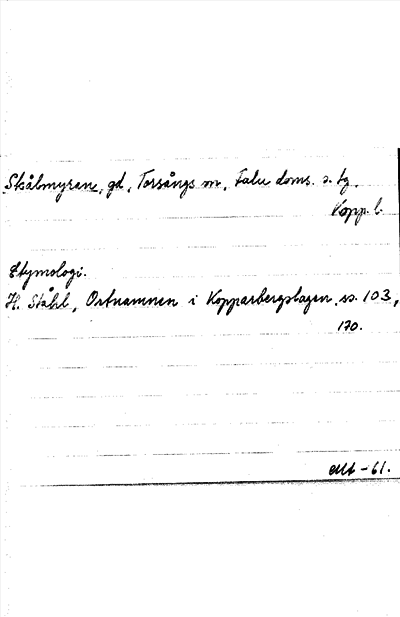 Skålmyran, gd, Torsångs sn, Falu doms. s. tg,
Kopp. l.
Etymologi.
H. Ståhl, Ortnamnen i Kopparbergslagen, ss. 103,
170.
-61.